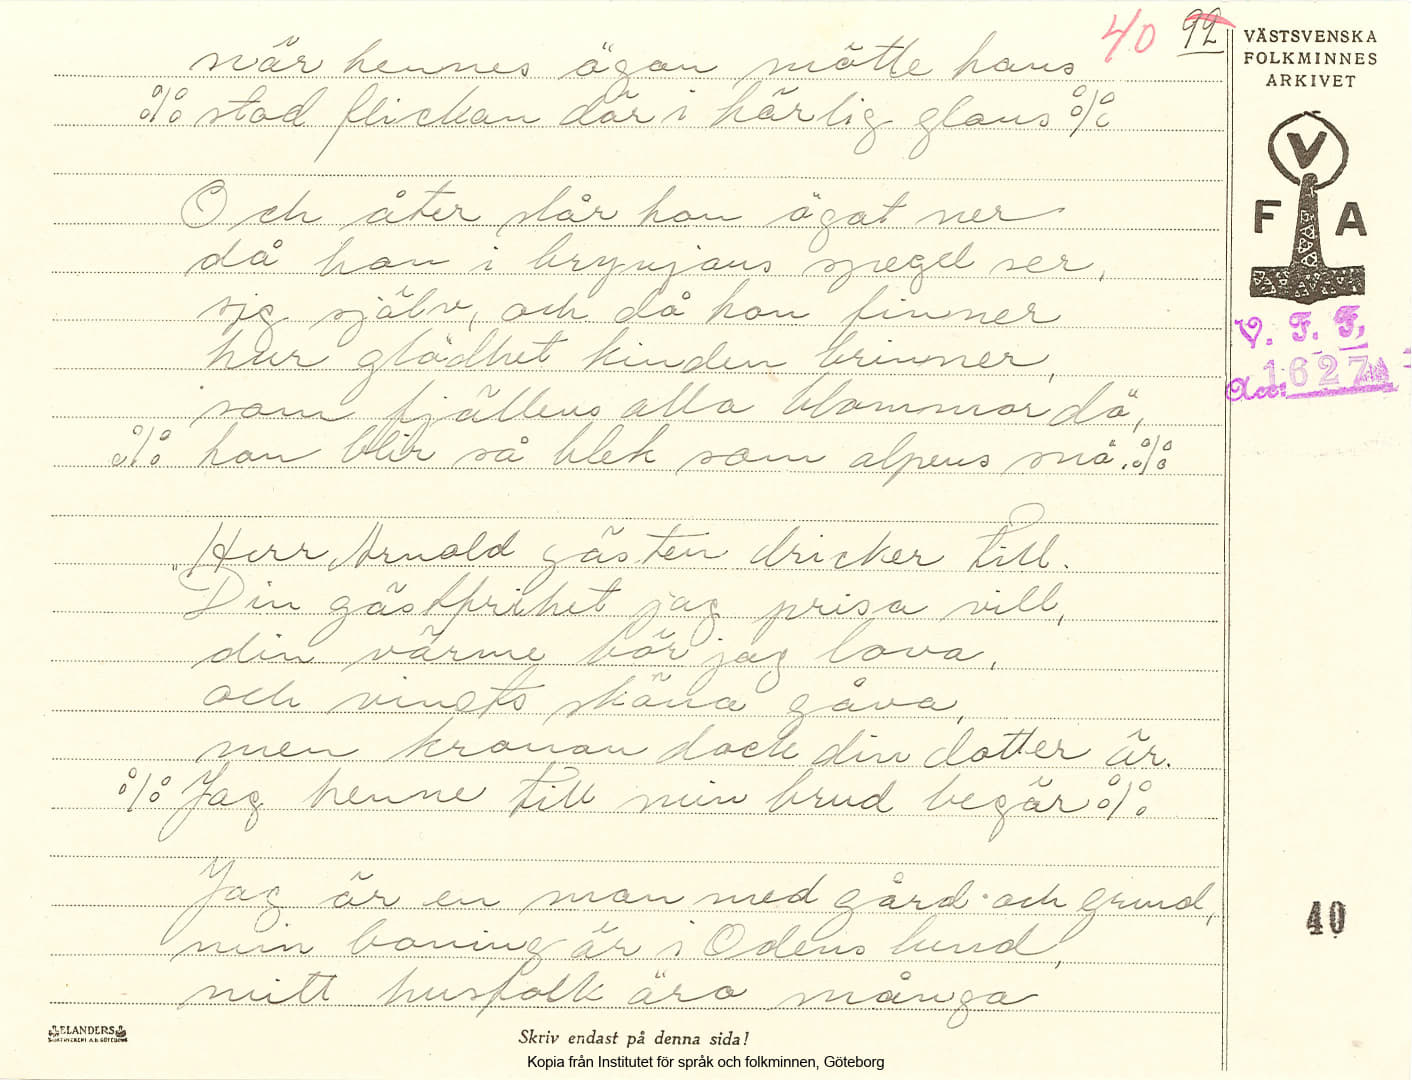 40 92
VÄSTSVENSKA
FOLKMINNES
ARKIVET
V
F A
V. F. F.
Acc: 1627
40
när hennes ögon mötte hans
%stod flickan där i härlig glans%

Och åter slår hon ögat ner
då hon i brynjans spegel ser,
sig själv, och då hon finner
hur glödhet kinden brinner,
som fjällens alla blommor dö,
% hon blir så blek som alpens snö.%

Herr Arnold gästen dricker till.
"Din gästfrihet jag prisa vill,
din värme bör jag lova,
och vinets sköna gåva,
men kronan dock din dotter är.
% Jag henne till min brud begär%

Jag är en man med gård och grund,
min boning är i Odens lund,
mitt husfolk äro många
ELANDERS
Skriv endast på denna sida!
Kopia från Institutet för språk och folkminnen, Göteborg